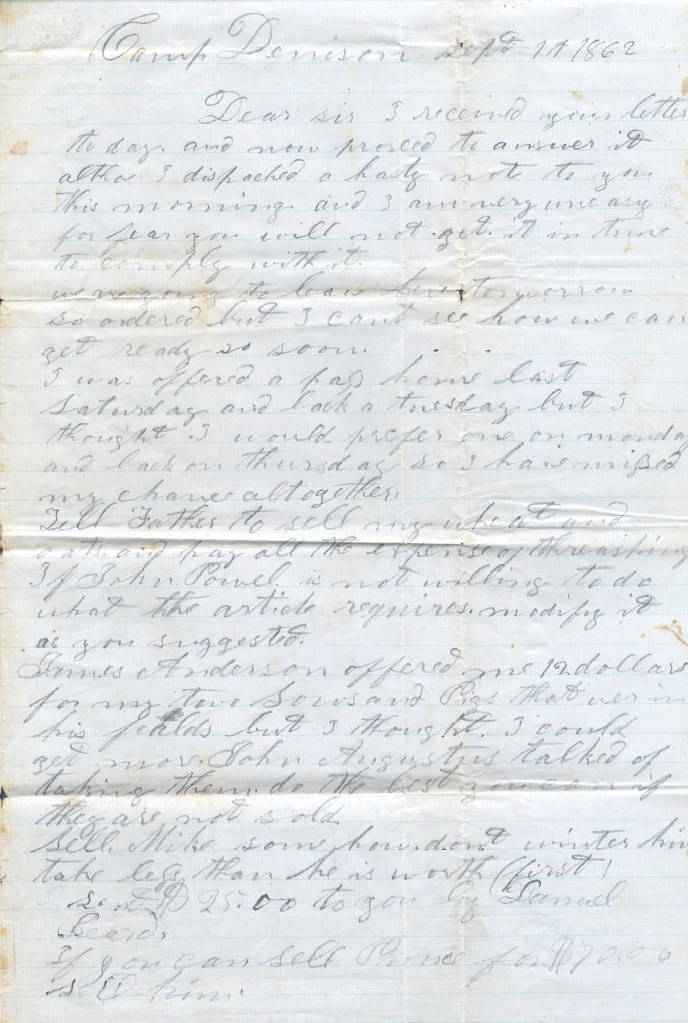 Camp Denison Sept 1st 1862
Dear sir I received your letter
to day. and now proceed to answer it
altho I dispached a hasty note to you
this morning. and I am very uneasy
for fear you will not get it in time
to comply with it.
we are going to leave here tomorrow
so ordered but I cant see how we can
get ready so soon.
I was offered a pass home last
Saturday and back a tuesday but I
thought I would prefer one on monday
and back on thursday so I have missed
my chance altogether.
Tell Father to sell my wheat and
oats and pay all the expense of threashing
If John Powel is not willing to do
what the article requires. modify it
as you suggested.
James Anderson offered me 12 dollars
for my two Sows and Pigs that wer in
his feilds but I thought I could
get more. John Augustus talked of
taking them. do the best you can if
they are not sold
Sell Mike some how. dont winter him
take less than he is worth (first)
sent $25.00 to you by Samuel
Beard.
If you can sell Prince for $70.00
sell him.